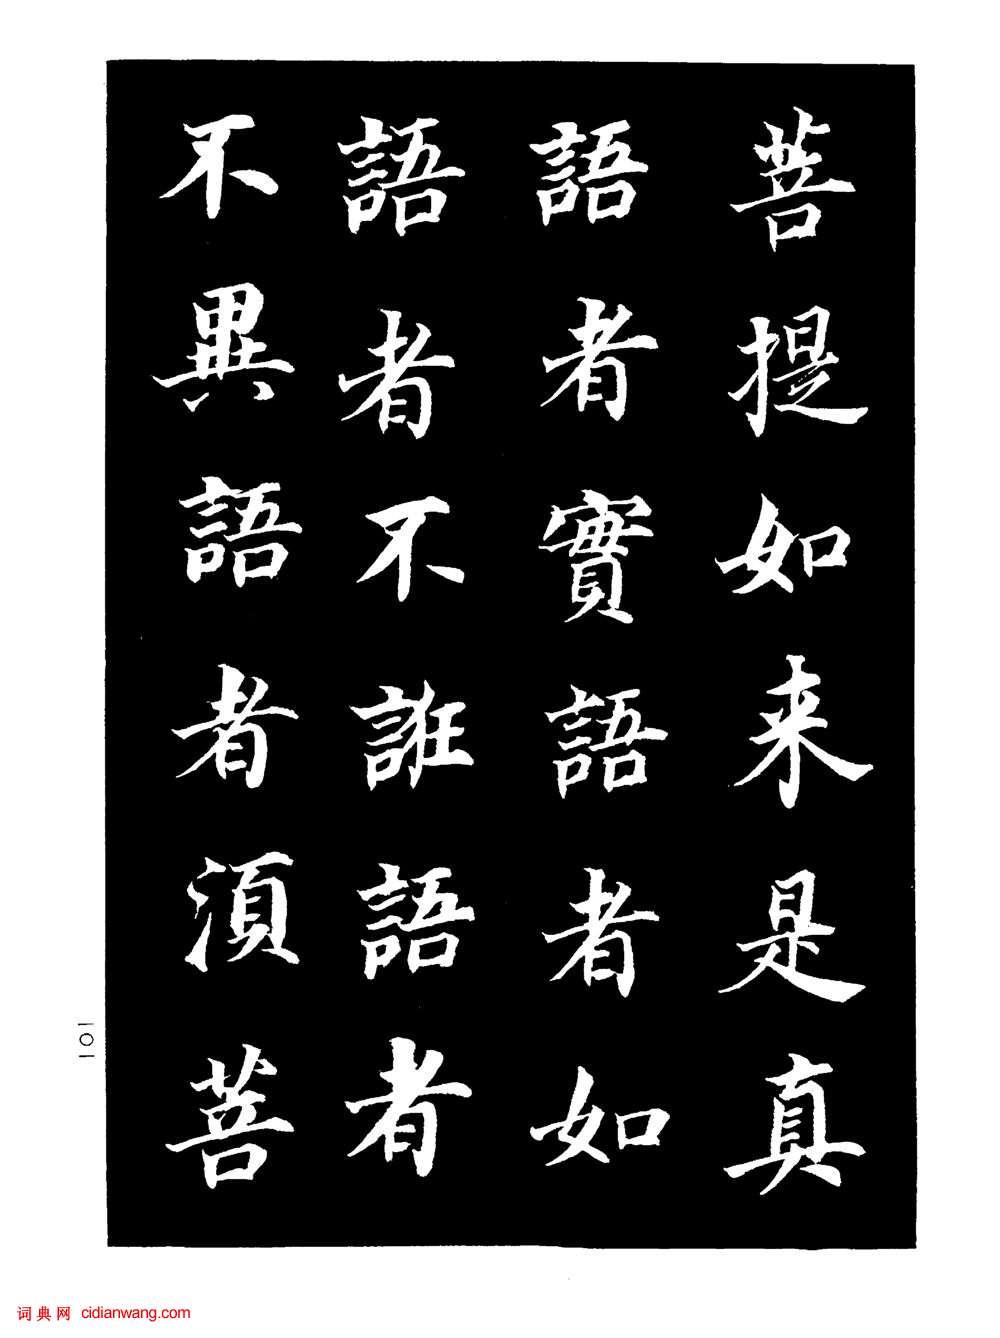 菩提如来是真
語者實語者如
語者不誑語者
不異語者湏菩
一〇一
词典网 cidianwang.com